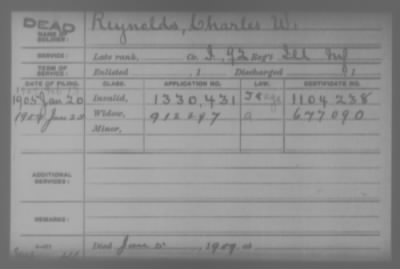 DEAD
NAME OF SOLDIER: Reynolds, Charles W.
SERVICE: Late rank, Co. I, 92 Reg't Ill Inf
TERM OF SERVICE: Enlisted , 1 Discharged , 1
DATE OF FILING. CLASS. APPLICATION NO. LAW. CERTIFICATE NO.
1905 Jan 20 Invalid, 1330,431 1104238
1909 Jan 20 Widow, 912247 a 677090
Minor,
ADDITIONAL SERVICES:
REMARKS:
Died Jan 5, 1909